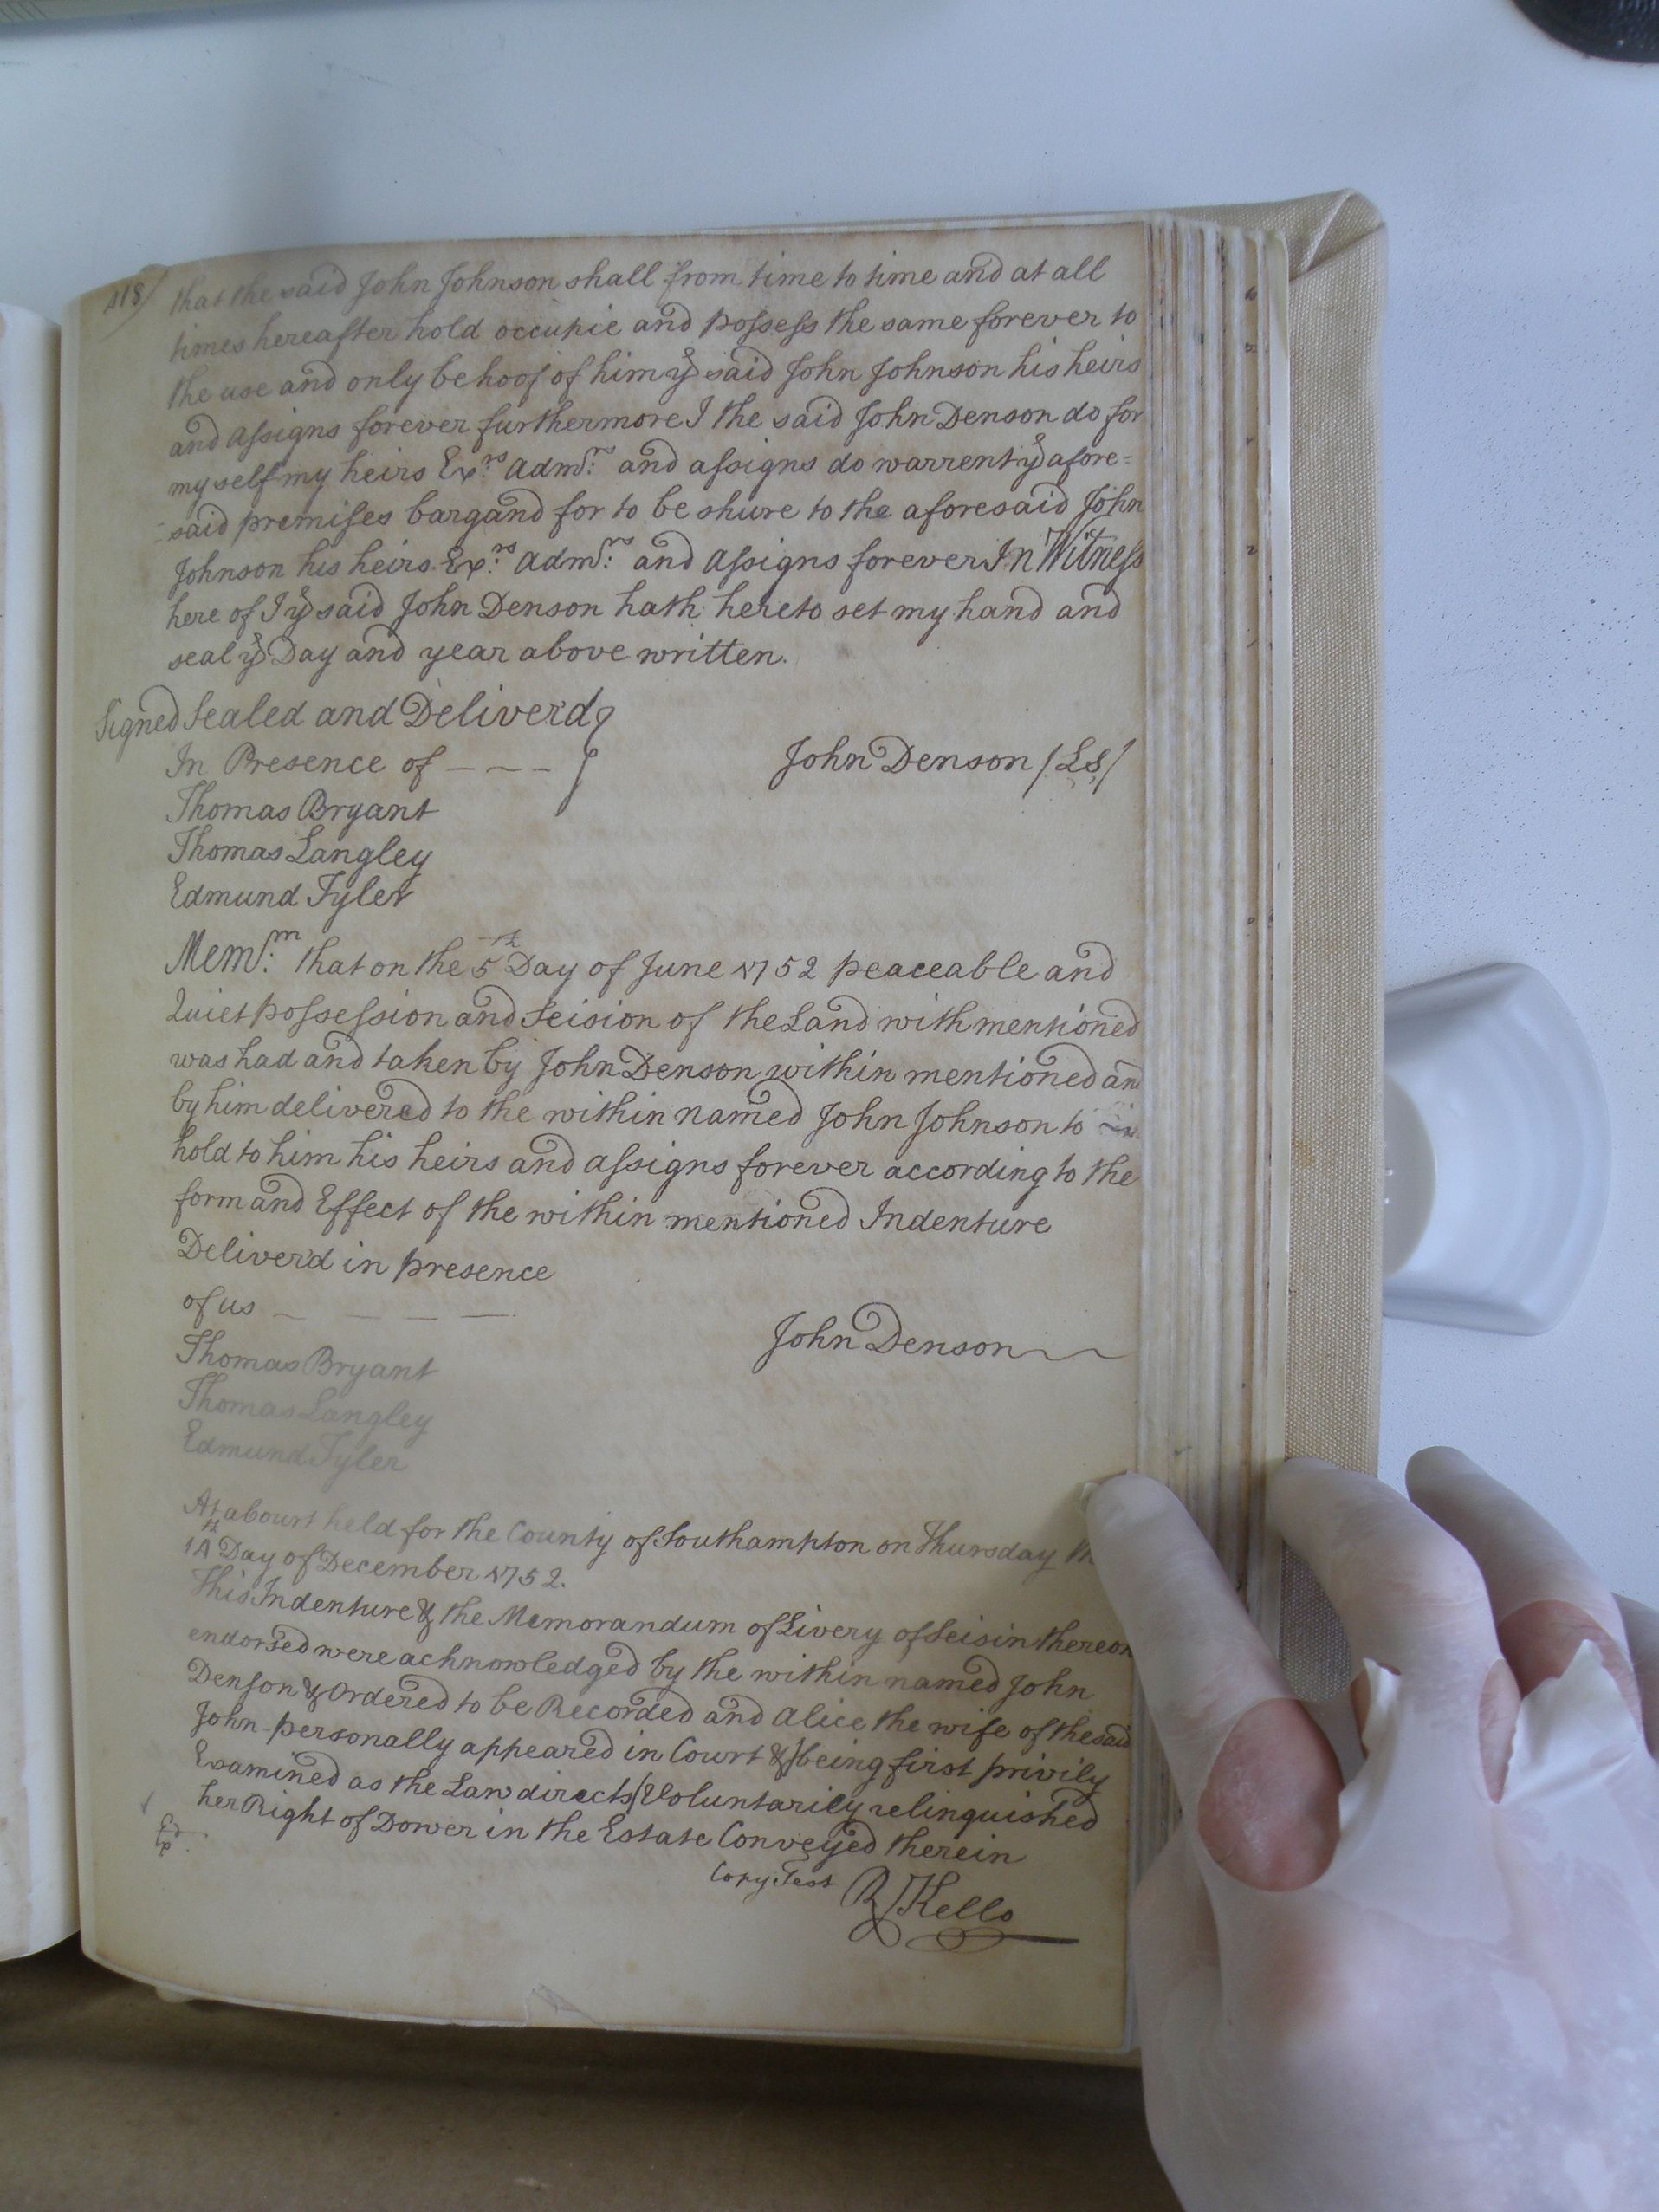 418/
that the said John Johnson shall from time to time and at all
times hereafter hold occupie and possess the same forever to
the use and only behoof of him yᵉ said John Johnson his heirs
and assigns forever furthermore I the said John Denson do for
my self my heirs Exrs: admrs: and assigns do warrent yᵉ afore=
-said premises bargand for to be shure to the aforesaid John
Johnson his heirs Exrs: admrs: and assigns forever In Witness
here of I yᵉ said John Denson hath hereto set my hand and
seal yᵉ Day and year above written.
Signed Sealed and Deliver'd
In Presence of - - - John Denson /LS/
Thomas Bryant
Thomas Langley
Edmund Tyler
Memm: that on the 5th Day of June 1752 peaceable and
Quiet possession and Seision of the Land with mentioned
was had and taken by John Denson within mentioned an
by him delivered to the within named John Johnson to
hold to him his heirs and assigns forever according to the
form and Effect of the within mentioned Indenture
Deliver'd in presence
of us - - - -
John Denson
Thomas Bryant
Thomas Langley
Edmund Tyler
At a Court held for the County of Southampton on Thursday th
14th Day of December 1752.
This Indenture & the Memorandum of Livery of Seisin thereon
endorsed were acknowledged by the within named John
Denson & Ordered to be Recorded and Alice the wife of the said
John personally appeared in Court & being first privily
Examined as the Law directs Voluntarily relinquished
her Right of Dower in the Estate Conveyed therein
Copy. Test R Kello